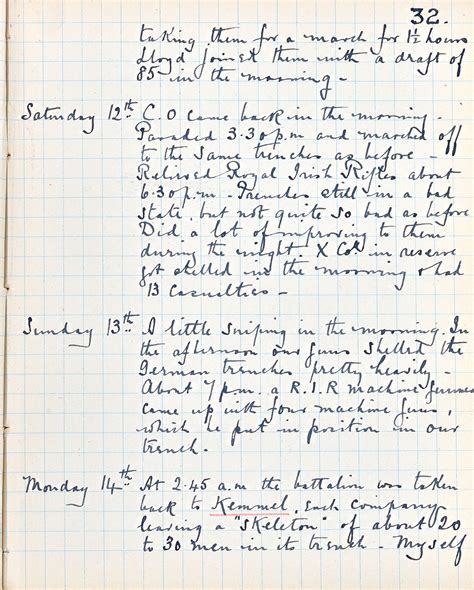 32.
taking them for a march for 1½ hours
Lloyd joined them with a draft of
85 in the morning -
Saturday 12th C.O came back in the morning -
Paraded 3.30 p.m and marched off
to the same trenches as before -
Relieved Royal Irish Rifles about
6.30 p.m - Trenches still in a bad
state, but not quite so bad as before
Did a lot of improving to them
during the night. X Coy in reserve
got shelled in the morning & had
13 casualties -
Sunday 13th A little sniping in the morning. In
the afternoon our guns shelled the
German trenches pretty heavily -
About 7 p.m. a R.I.R machine gunner
came up with four machine guns,
which he put in position in our
trench.
Monday 14th At 2.45 a.m the battalion was taken
back to Kemmel, each company
leaving a "skeleton" of about 20
to 30 men in its trench - Myself